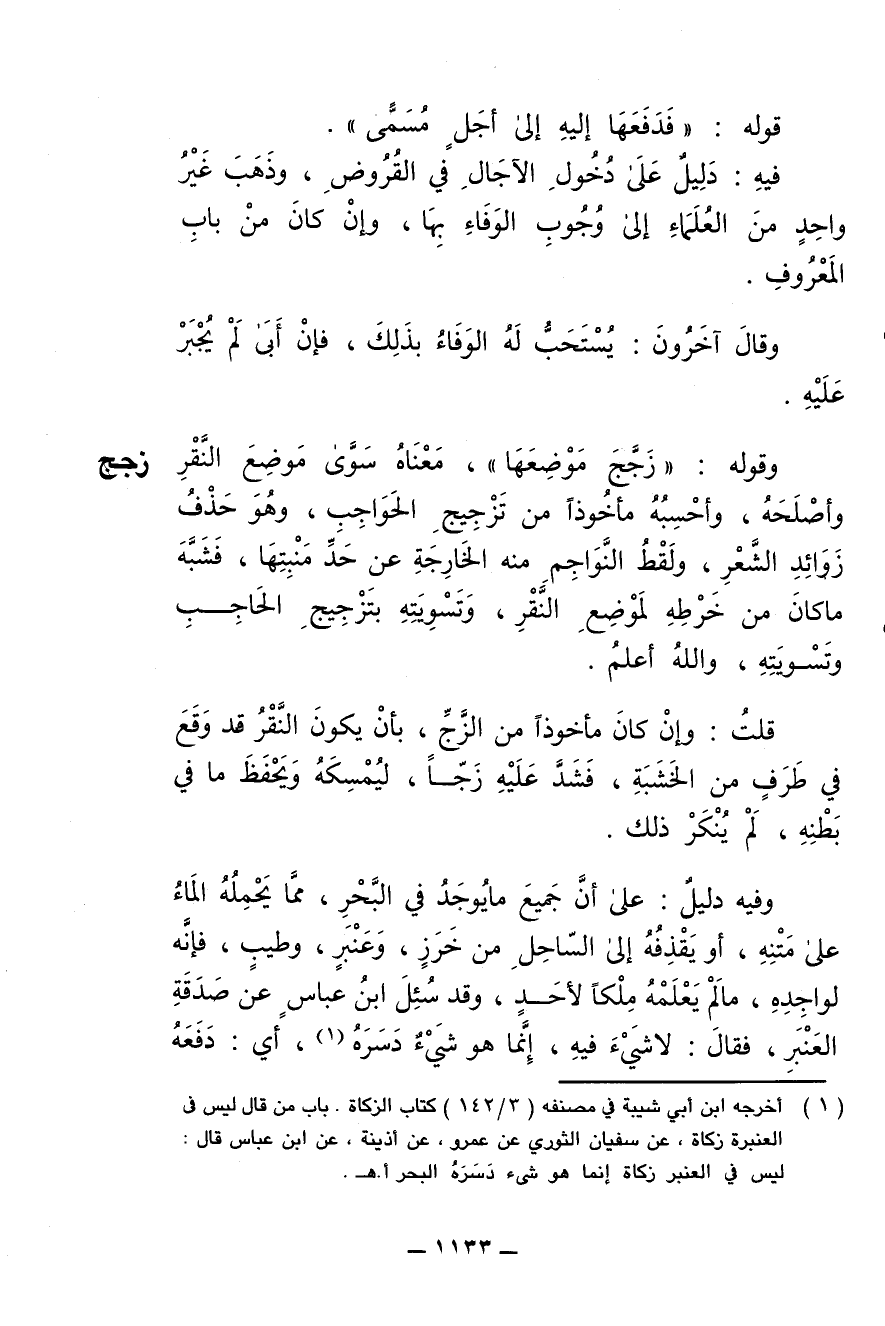 قوله : « فَدَفَعَهَا إليهِ إلىٰ أجَلٍ مُسَمًّى » .
فيهِ : دَلِيلٌ عَلَىٰ دُخُولِ الآجَالِ في القُرُوضِ ، وذَهَبَ غَيْرُ
واحِدٍ منَ العُلَمَاءِ إلىٰ وُجُوبِ الوَفَاءِ بِهَا ، وإنْ كانَ منْ بابِ
المَعْرُوفِ .
وقالَ آخَرُونَ : يُسْتَحَبُّ لَهُ الوَفَاءُ بذَلِكَ ، فإنْ أَبَىٰ لَمْ يُجْبَرْ
عَلَيْهِ .
وقوله : « زَجَّجَ مَوْضِعَهَا » ، مَعْنَاهُ سَوَّىٰ مَوضِعَ النَّقْرِ زجج
وأصْلَحَهُ ، وأحْسِبُهُ مأخُوذاً من تَزْجِيجِ الحَوَاجِبِ ، وهُوَ حَذْفُ
زَوَائِدِ الشَّعْرِ ، ولَقْطُ النَّوَاجِمِ منه الخَارِجَةِ عن حَدِّ مَنْبِتِهَا ، فَشَبَّهَ
ماكانَ من خَرْطِهِ لمَوْضِعِ النَّقْرِ ، وَتَسْوِيَتِهِ بتَزْجِيجِ الحَاجِبِ
وتَسْوِيَتِهِ ، واللهُ أعلمُ .
قلتُ : وإنْ كانَ مأخوذاً من الزَّجِّ ، بأنْ يكونَ النَّقْرُ قد وَقَعَ
في طَرَفٍ من الخَشَبَةِ ، فَشَدَّ عَلَيْهِ زَجّاً ، ليُمْسِكَهُ وَيَحْفَظَ ما في
بَطْنِهِ ، لَمْ يُنْكَرْ ذلك .
وفيه دليلٌ : علىٰ أنَّ جَمِيعَ مايُوجَدُ في البَّحْرِ ، ممَّا يَحْمِلُهُ المَاءُ
علىٰ مَتْنِهِ ، أو يَقْذِفُهُ إلىٰ السّاحِلِ من خَرَزٍ ، وَعَنْبَرٍ ، وطيبٍ ، فإنَّه
لواجِدِهِ ، مالَمْ يَعْلَمْهُ مِلْكاً لأحَدٍ ، وقد سُئِلَ ابنُ عباسٍ عن صَدَقَةِ
العَنْبَرِ ، فقالَ : لاشَيْءَ فيهِ ، إنَّما هو شَيْءٌ دَسَرَهُ (١) ، أي : دَفَعَهُ
( ١ ) أخرجه ابن أبي شيبة في مصنفه ( ١٤٢/٣ ) كتاب الزكاة . باب من قال ليس فى
العنبرة زكاة ، عن سفيان الثوري عن عمرو ، عن أذينة ، عن ابن عباس قال :
ليس في العنبر زكاة إنما هو شىء دَسَرَهُ البحر أ.هـ .
ــ ١١٣٣ ــ